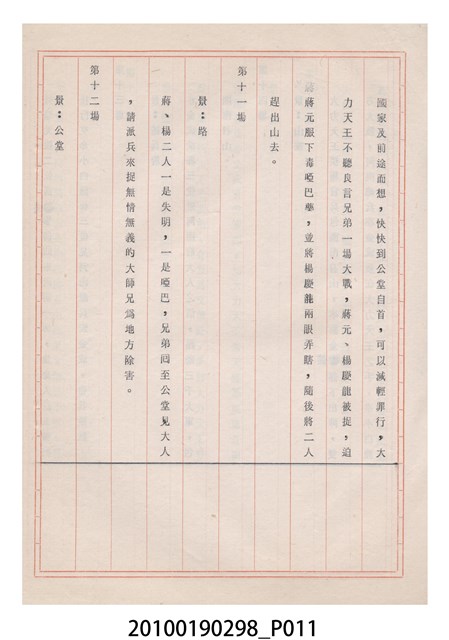 國家及前途而想，快快到公堂自首，可以減輕罪行，大
力天王不聽良言兄弟一場大戰，蔣元、楊慶龍被捉，迫
蔣元服下毒啞巴藥，並將楊慶龍兩眼弄瞎，隨後將二人
趕出山去。
第十一場
景：路
蔣、楊二人一是失明，一是啞巴，兄弟回至公堂見大人
，請派兵來捉無情無義的大師兄爲地方除害。
第十二場
景：公堂
20100190298_P011